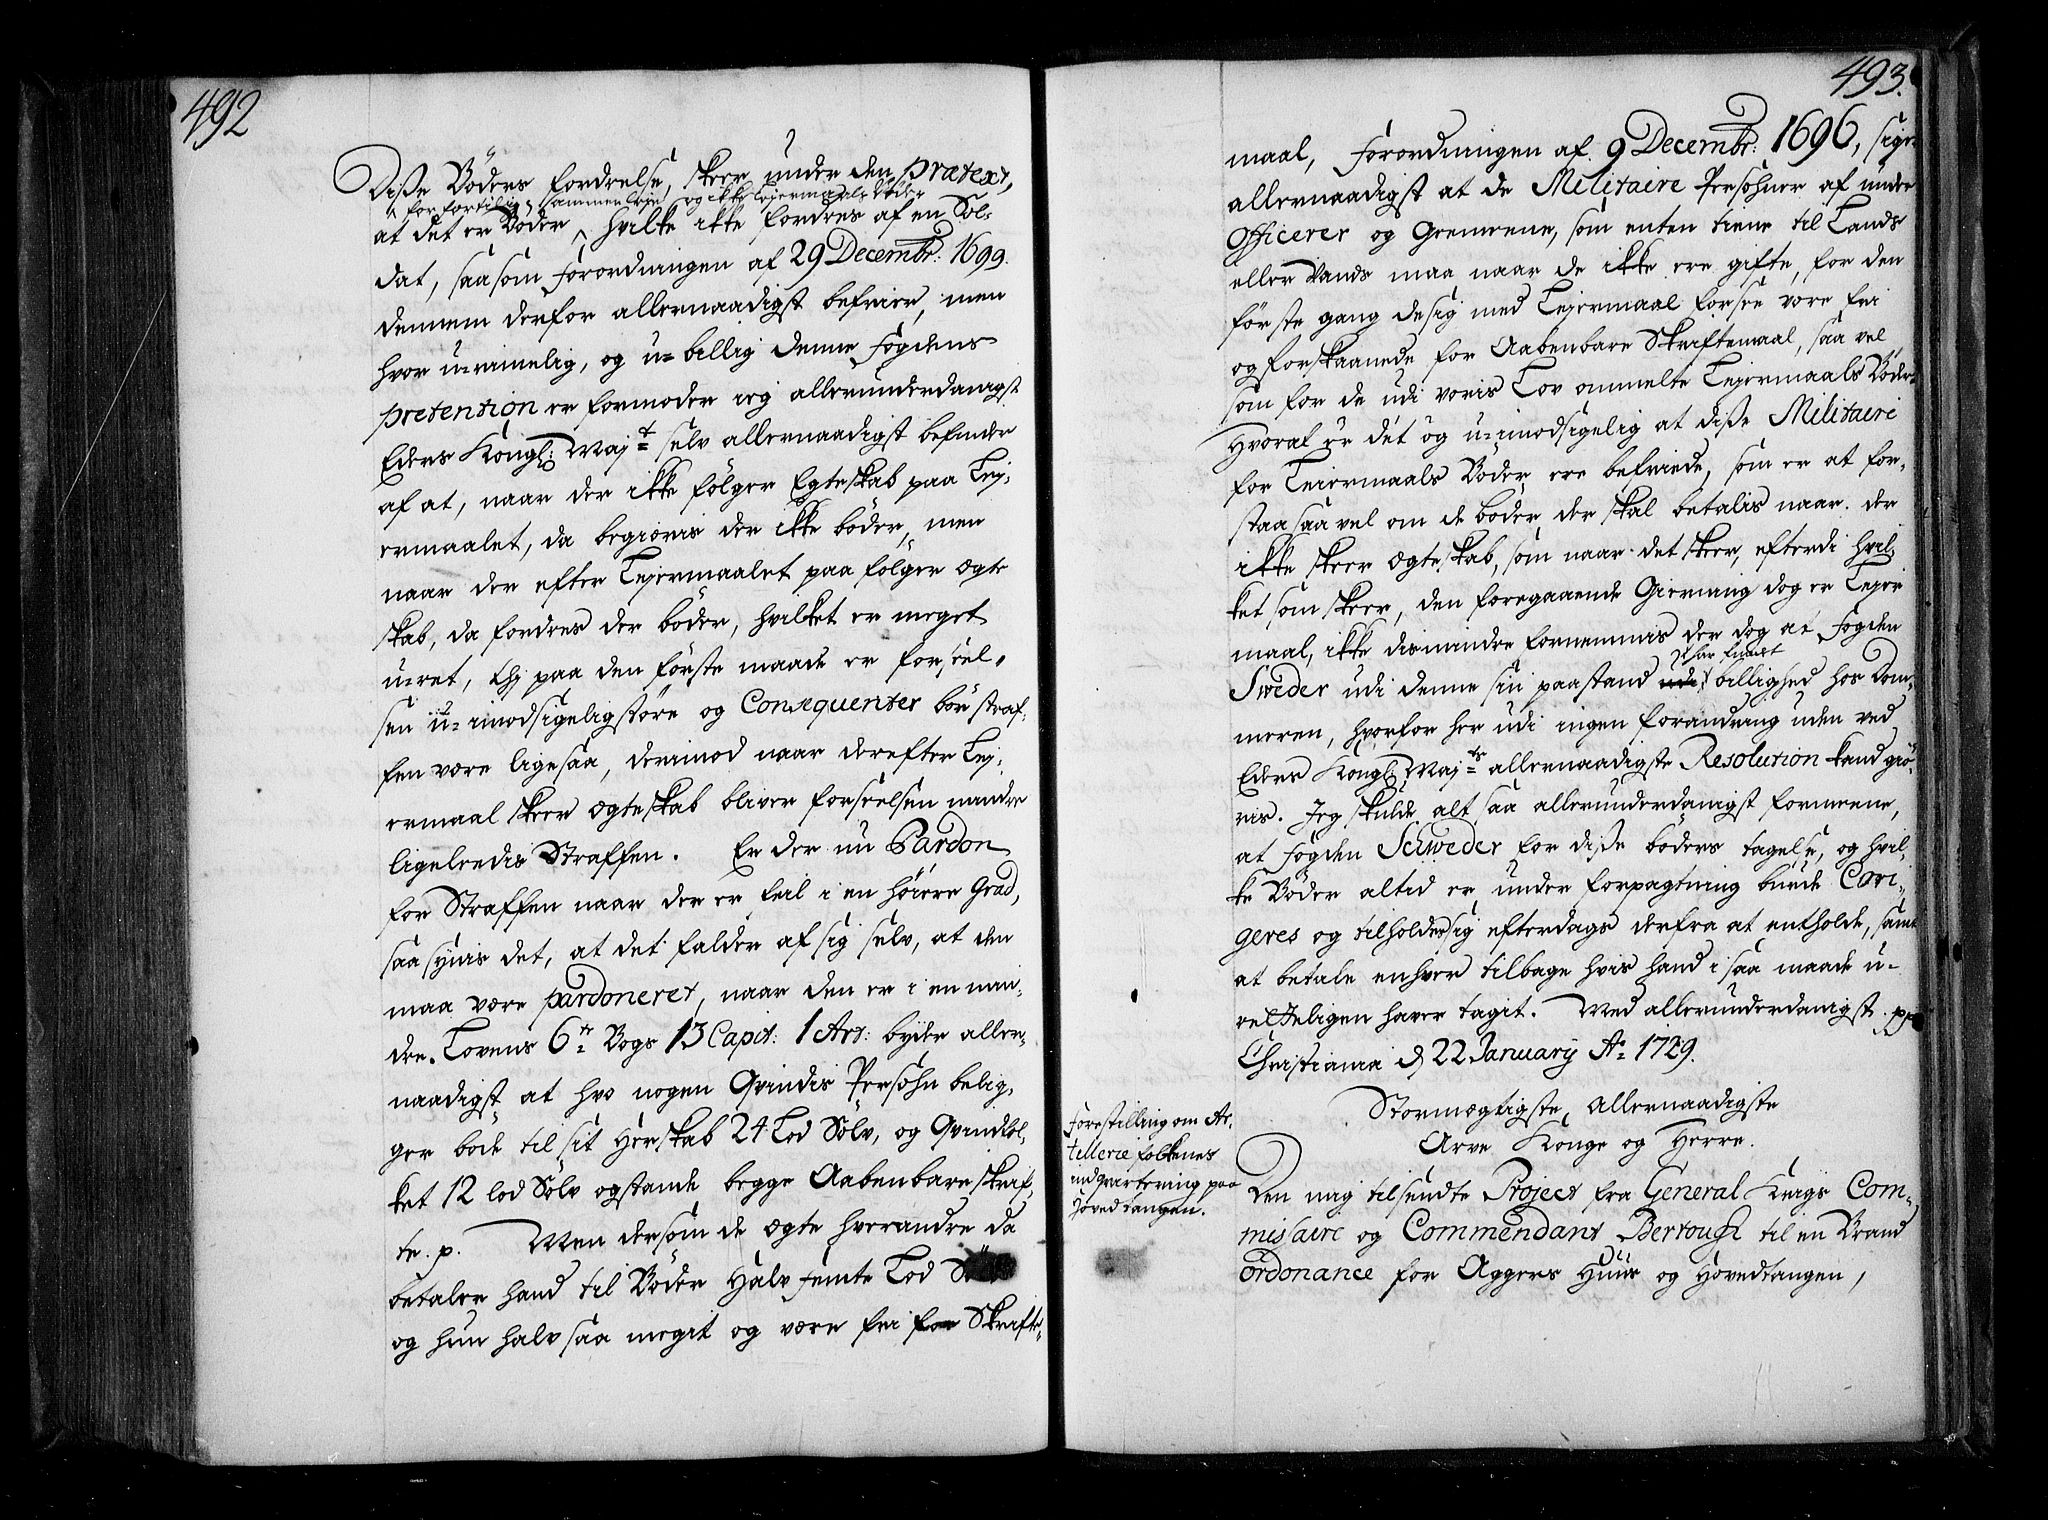 492
Disse Bøders fordrelse, skeer under den prætext,
for fortilig sammenleie og ikke Leiermaals Bøder
at det er Bøder ^ hvilke ikke fordres af en Sol-
dat, saasom Forordningen af 29 Decembr: 1699.
dennem derfor allernaadigst befrier, men
hvor u-rimelig, og u-billig denne Fogdens
pretention er formoder ieg allerunderdanigst
Eders Kongl: Majt selv allernaadigst befinder
af at, naar der ikke følger Egteskab paa Lej-
ermaalet, da begieris der ikke bøder, men
naar der efter Lejermaalet paa følger ægte
skab, da fordres der bøder, hvilket er meget
u-ret, thj paa den første maade er forseel-
sen u-imodsigelig større og Consequenter bør straf-
fen være ligesaa, derimod naar derefter Lej-
ermaal skeer ægteskab bliver forseelsen mindre
ligeledis Straffen. Er der nu Pardon
for Straffen naar der er feil i en høiere Grad,
saa synis det, at det falder af sig selv, at den
maa være pardoneret, naar den er i en min-
dre. Lovens 6te Bogs 13 Capit: 1 Art: byder aller-
naadigst at hvo nogen Qvindis Persohn belig-
ger bøde til sit Herskab 24 Lod Sølv, og Qvindfol-
ket 12 lod Sølv og stande begge Aabenbare skrif-
te. p. Men dersom de ægte hverandre da
betaler hand til Bøder Halv femte Lod Sølv
og hun halv saa megit og være fri for Skrifte-
493.
maal, Forordningen af 9 Decembr: 1696, siger
allernaadigst at de Militaire Persohner af under
Officerer og Gemeene, som enten tiene til Lands
eller Vands maa naar de ikke ere gifte, for den
første gang de sig med Lejermaal forsee være fri
og forskaanede for Aabenbare Skriftemaal, saa vel
som for de udi voris Lov ommelte Lejermaals Bøder
Hvoraf er det og u-imodsigelig at disse Militaire
for Leiermaals Bøder ere befriede, som er at for-
staa saa vel om de bøder der skal betalis naar der
ikke skeer Ægteskab, som naar det skeer, efterdi hvil-
ket som skeer, den foregaaende Gierning dog er Lejer
maal, ikke dismindre fornemmis der dog at Fogden
har fundet
Sweder udi denne sin paastand udi billighed hos Dom-
meren, hvorfor her udi ingen forandring uden ved
Eders Kongl: Majts allernaadigste Resolution kand giø-
ris. Jeg skulde alt saa allerunderdanigst formeene,
at Fogden Schweder for disse bøders tagelse, og hvil-
ke Bøder altid er under forpagtning burde Cori-
geres og tilholdes sig efterdags derfra at entholde, samt
at betale enhver tilbage hvis hand i saa maade u-
retteligen haver tagit. Med allerunderdanigst pp
Christiania d 22 January Ao 1729.
Stormægtigste, Allernaadigste
Arve Konge og Herre.
Forestilling om Ar-
tellerie folkenes
indqvartering paa
Hovedtangen.
Den mig tilsendte Project fra General Krigs Com-
missaire og Commendant Bertouch til en Brand
Ordonance for Aggers Huus og Hovedtangen,